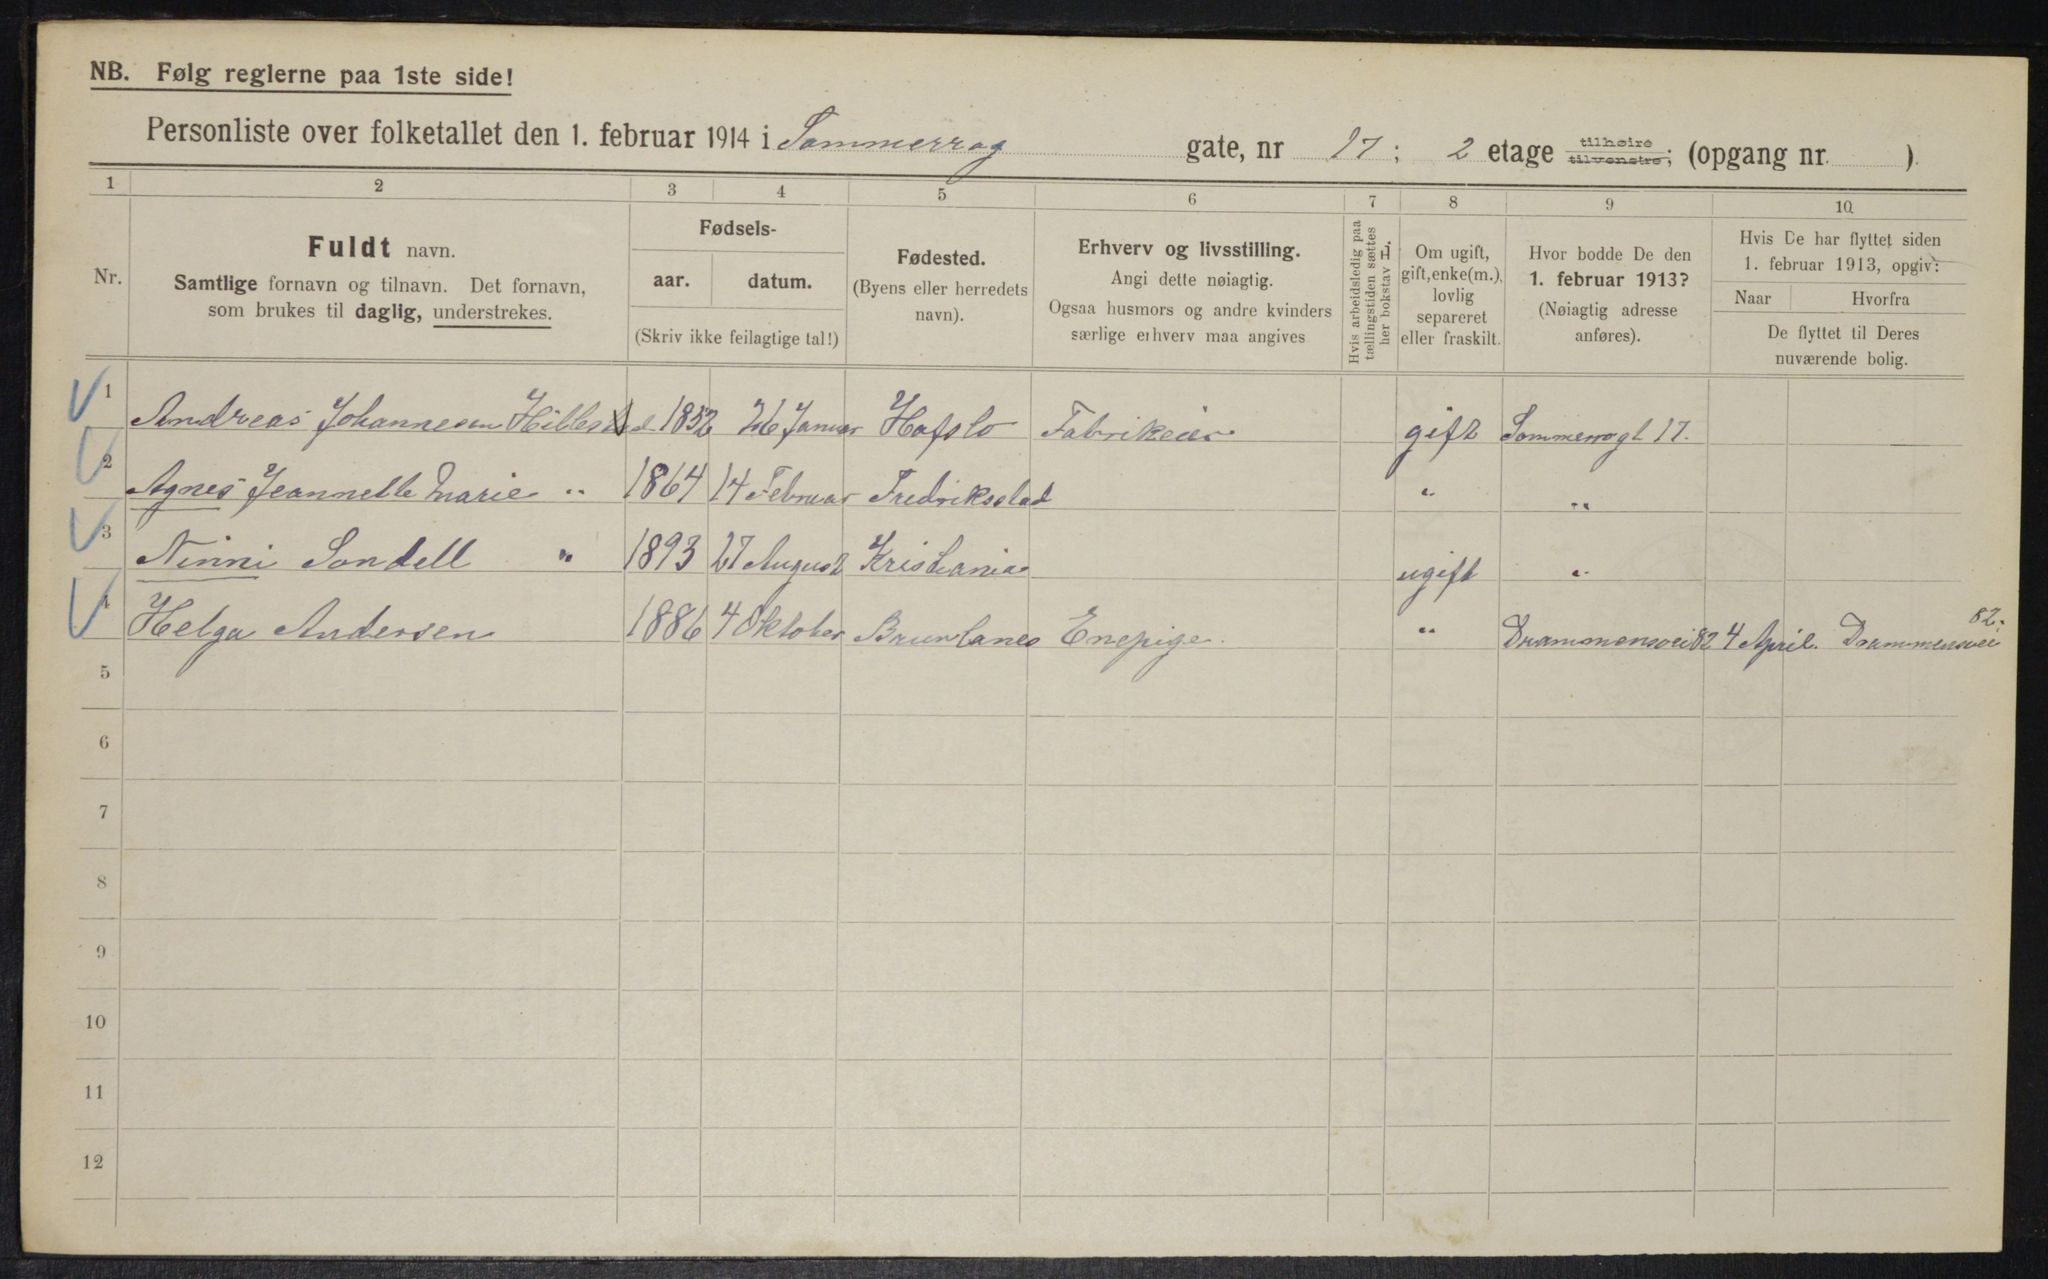 NB. Følg reglerne paa 1ste side!
Personliste over folketallet den 1. februar 1914 i Sommerrog gate, nr 17; 2 etage tilhøire tilvenstre; (opgang nr. )
1 2 3 4 5 6 7 8 9 10
Nr.
Fuldt navn.
Samtlige fornavn og tilnavn. Det fornavn,
som brukes til daglig, understrekes.
Fødsels-
aar. datum.
(Skriv ikke feilagtige tal!)
Fødested.
(Byens eller herredets
navn).
Erhverv og livsstilling.
Angi dette nøiagtig.
Ogsaa husmors og andre kvinders
særlige erhverv maa angives
Hvis arbeidsledig paa
tællingstiden sættes
her bokstav L.
Om ugift,
gift, enke(m.),
lovlig
separeret
eller fraskilt.
Hvor bodde De den
1. februar 1913?
(Nøiagtig adresse
anføres).
Hvis De har flyttet siden
1. februar 1913, opgiv:
Naar Hvorfra
De flyttet til Deres
nuværende bolig.
1 Andreas Johannesen Hillestad 1852 26 Januar Hafslo Fabrikeier gift Sommerrogt 17.
2 Agnes Jeannette Marie " 1864 14 Februar Fredriksstad " "
3 Ninni Sondell " 1893 27 August Kristiania ugift "
4 Helga Andersen 1886 4 Oktober Enepige. " Drammensvei 82 4 April. Drammensvei 82.
5
6
7
8
9
10
11
12